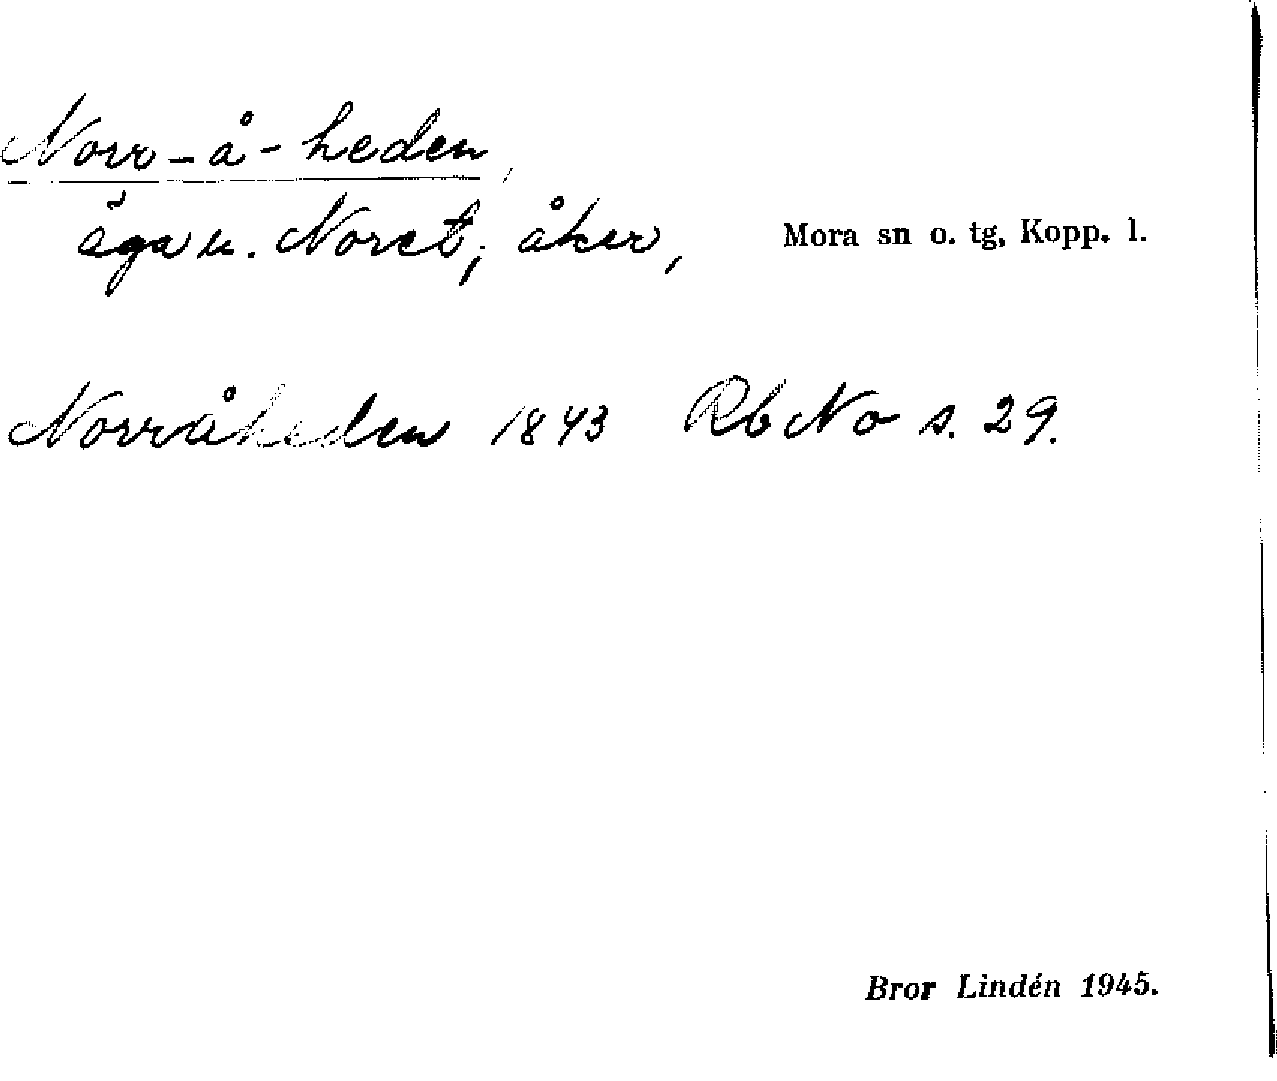 Norr-å-heden,
äga u. Noret; åker, Mora sn o. tg, Kopp. l.
Norråheden 1843 Rb No s. 29.
Bror Lindén 1945.